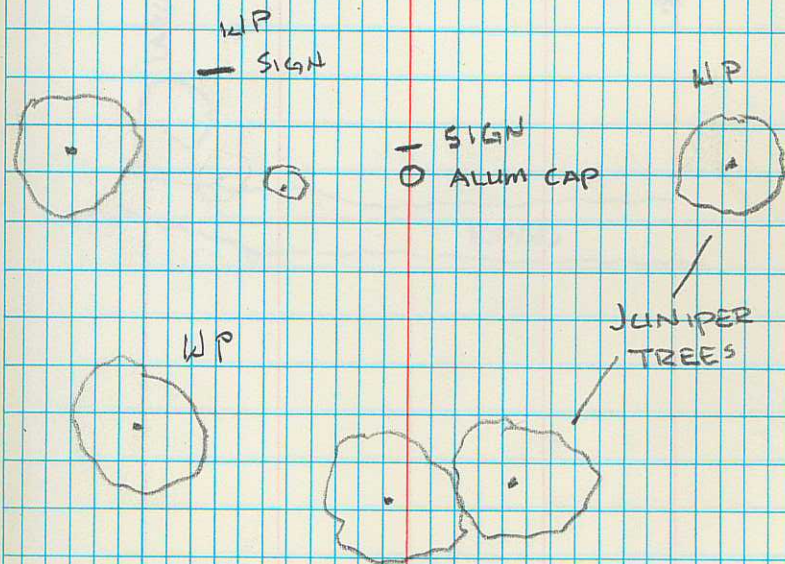 WP
SIGN
WP
SIGN
ALUM CAP
JUNIPER
TREES
WP